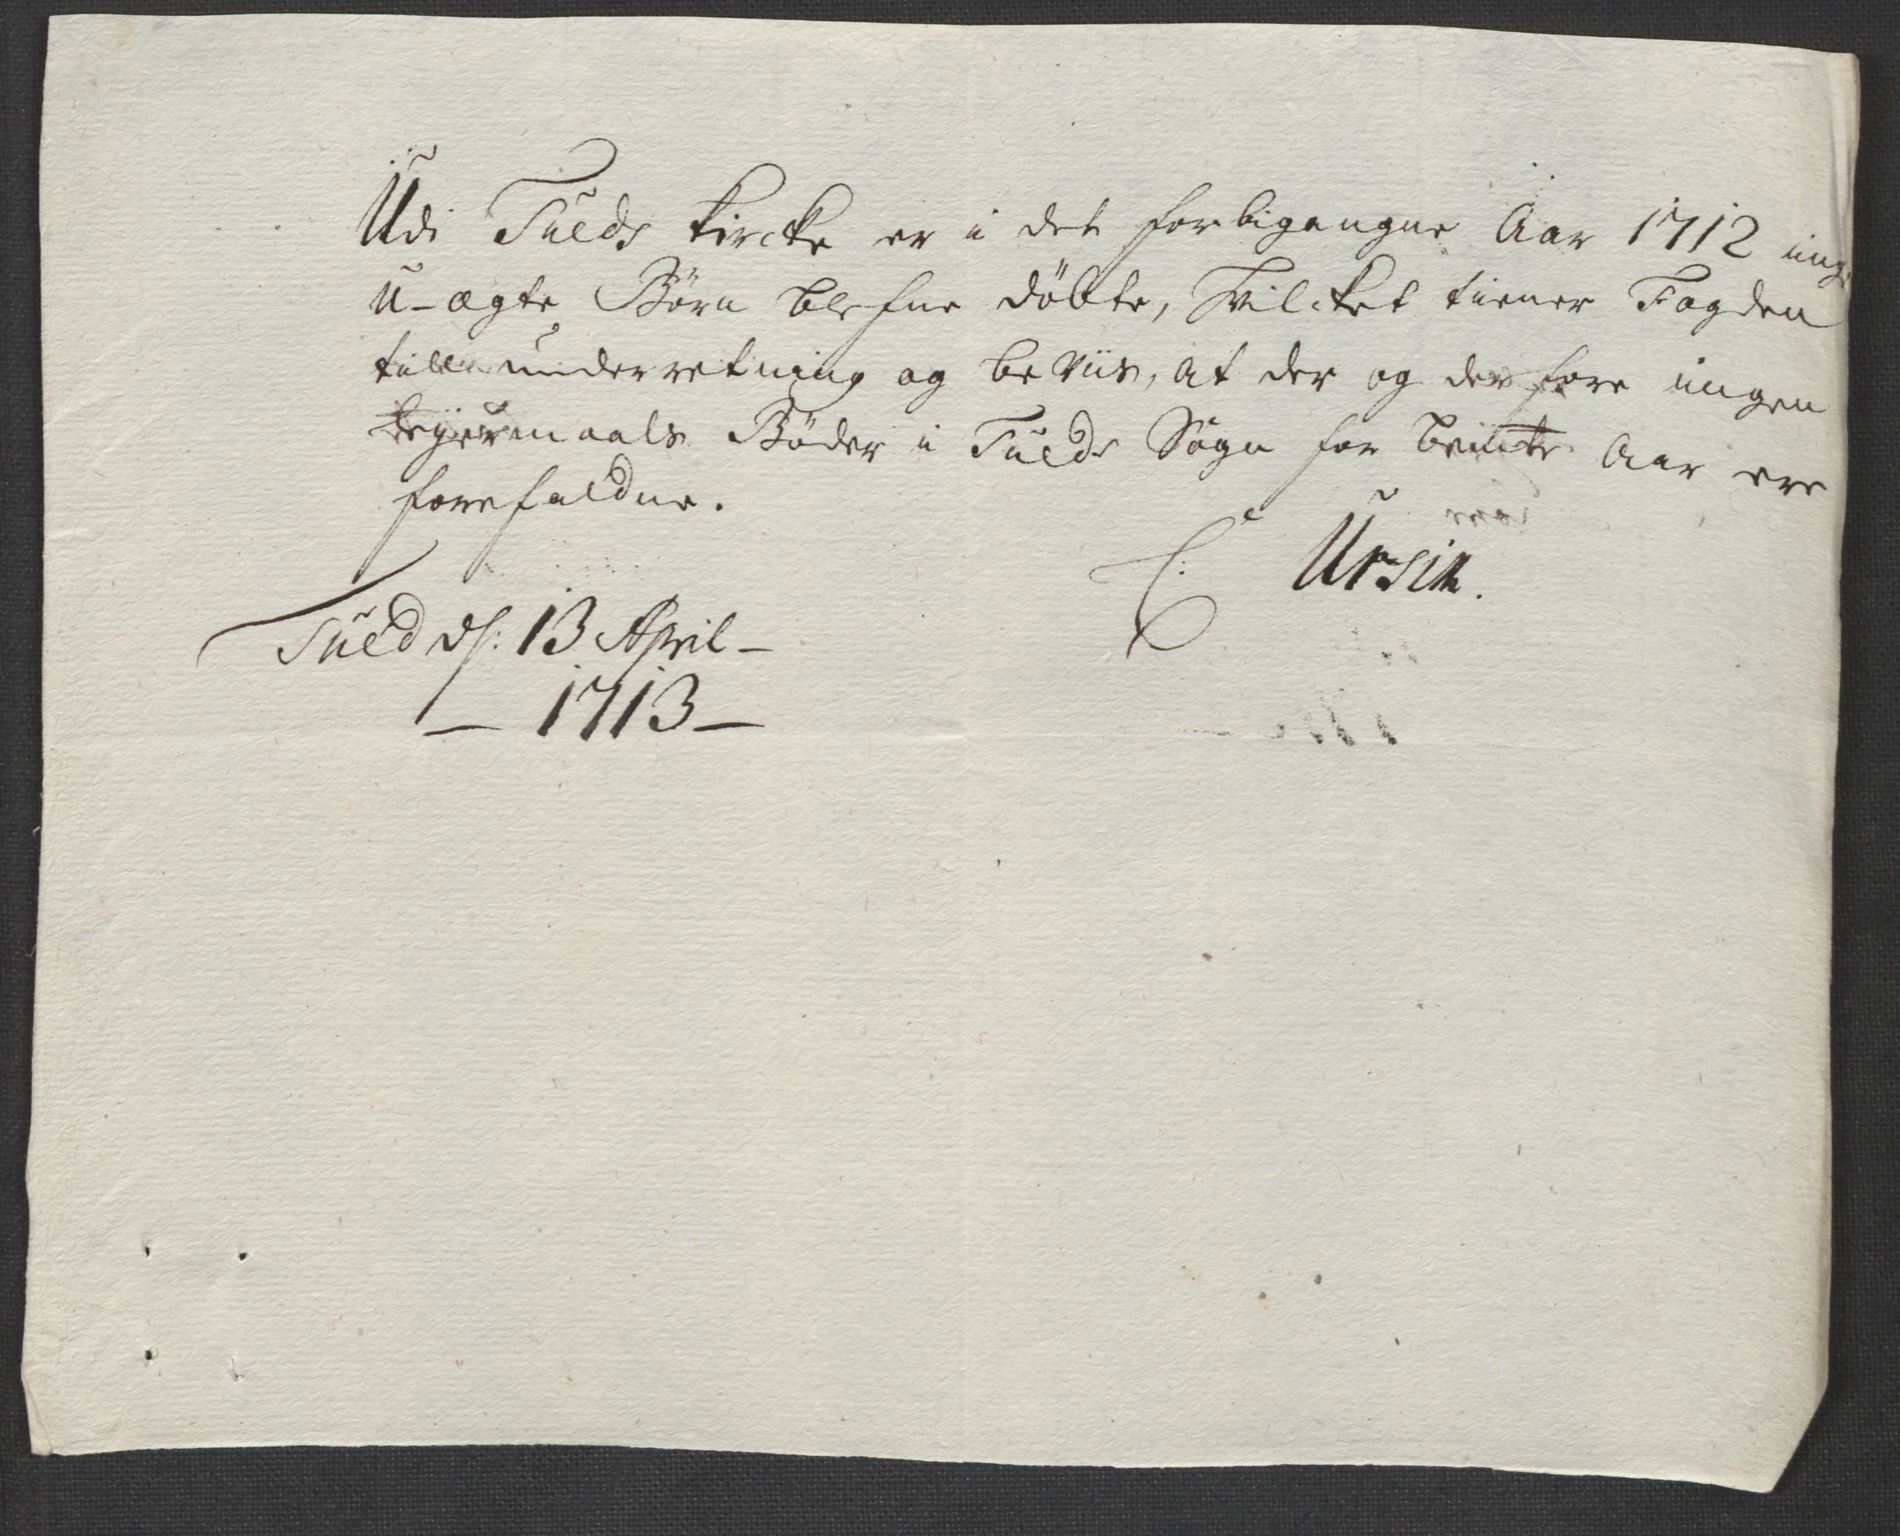 Udi Tueds Kircke er i det forbigangne Aar 1712 ing:
U-ægte Børn blefne döbte, Hvilcket tiener Fogden
till underretning og beviis, at der og derfore ingen
Leyermaals Bøder i Tueds Sogn for bemte Aar ere
forefaldne.
C: Ursin.
Tued ds: 13 April –
– 1713 –